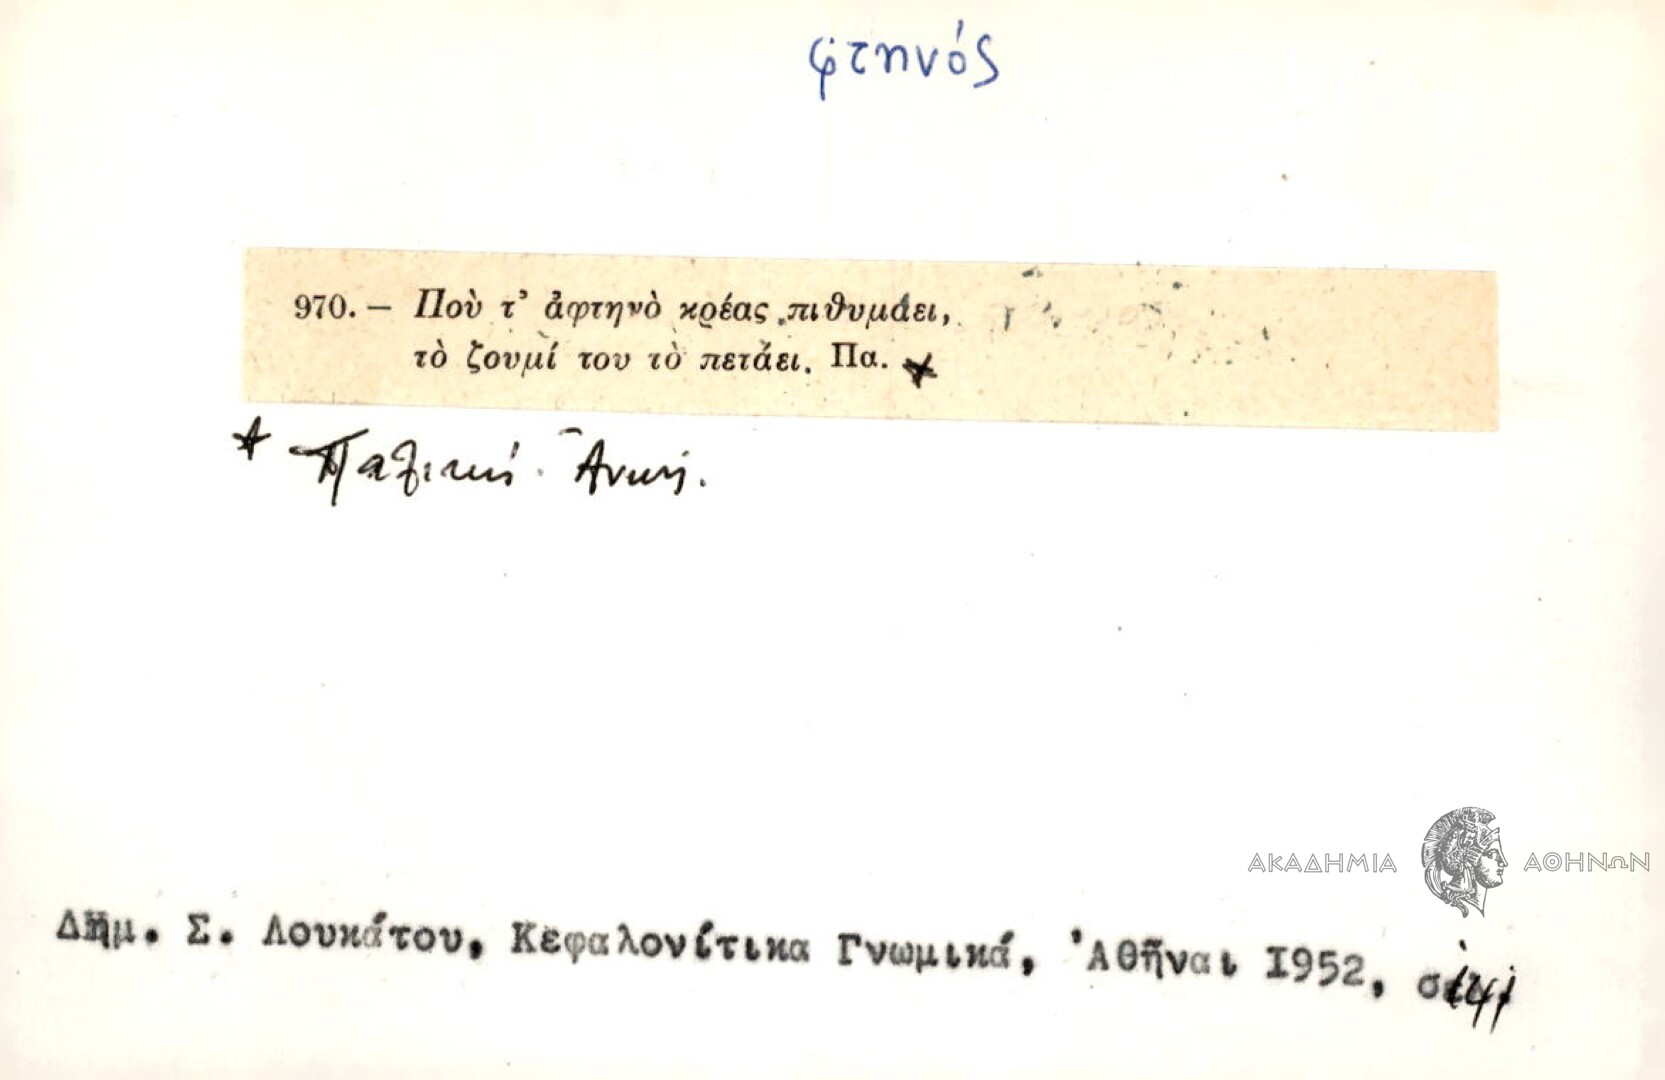 φτηνός
970. — Ποὺ τ' ἀφτηνὸ κρέας πιθυμάει,
τὸ ζουμί του τὸ πετάει. Πα.
ΑΚΑΔΗΜΙΑ ΑΘΗΝΩΝ
Δημ. Σ. Λουκάτου, Κεφαλονίτικα Γνωμικά, Ἀθῆναι 1952, σελ. 141